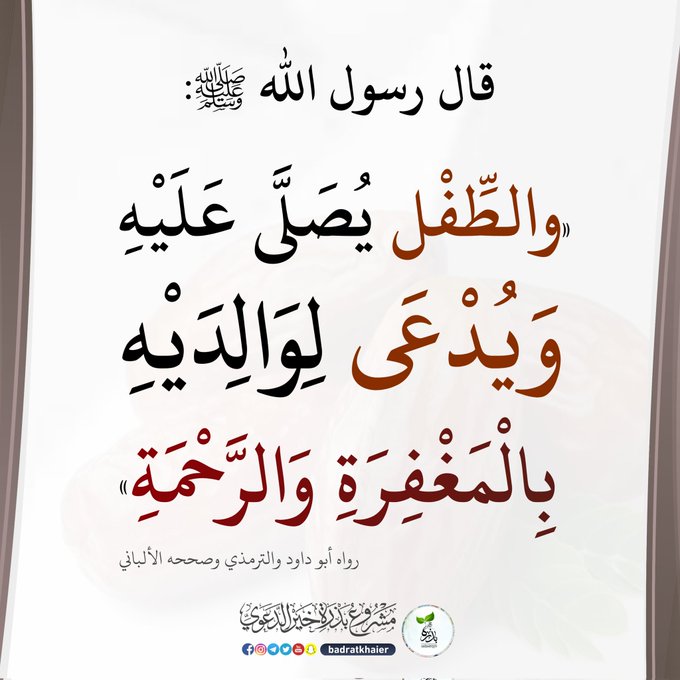 قال رسول الله ﷺ:
«والطِّفْل يُصَلَّى عَلَيْهِ
وَيُدْعَى لِوَالِدَيْهِ
بِالْمَغْفِرَةِ وَالرَّحْمَةِ»
رواه أبو داود والترمذي وصححه الألباني
مشروع بذرة خير الدعوي
بذرة
badratkhaier